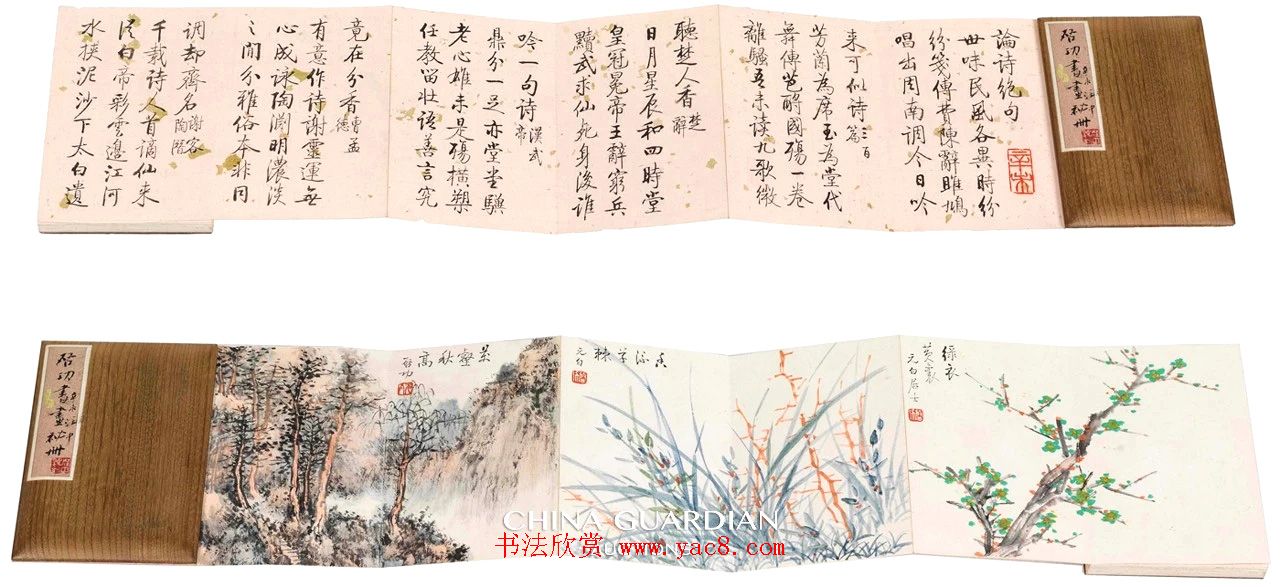 启功書畫袖冊
論詩絕句
世味民風各異時紛
紛箋傳費陳辭雎鳩
唱出周南調今日吟
來可似詩 三百篇
芳蘭為席玉為堂代
舞傳芭酹國殤一卷
離騷吾未读九歌微
聽楚人香 楚辭
日月星辰和四時堂
皇冠冕帝王辭窮兵
黷武求仙死身後誰
吟一句詩 漢武帝
鼎分一足亦堂堂驥
老心雄未是殤橫槊
任教留壯語善言究
竟在分香 曹孟德
有意作詩謝靈運無
心成詠陶淵明濃淡
之間分雅俗本非同
調却齊名 謝客陶潛
千載詩人首謫仙来
從白帝彩雲邊江河
水挾泥沙下太白遺
辛未
綠衣
黃裏
元白居士
元白
萬壑秋高
啟功
启功書畫袖冊
CHINA GUARDIAN
书法欣赏 www.yac8.com